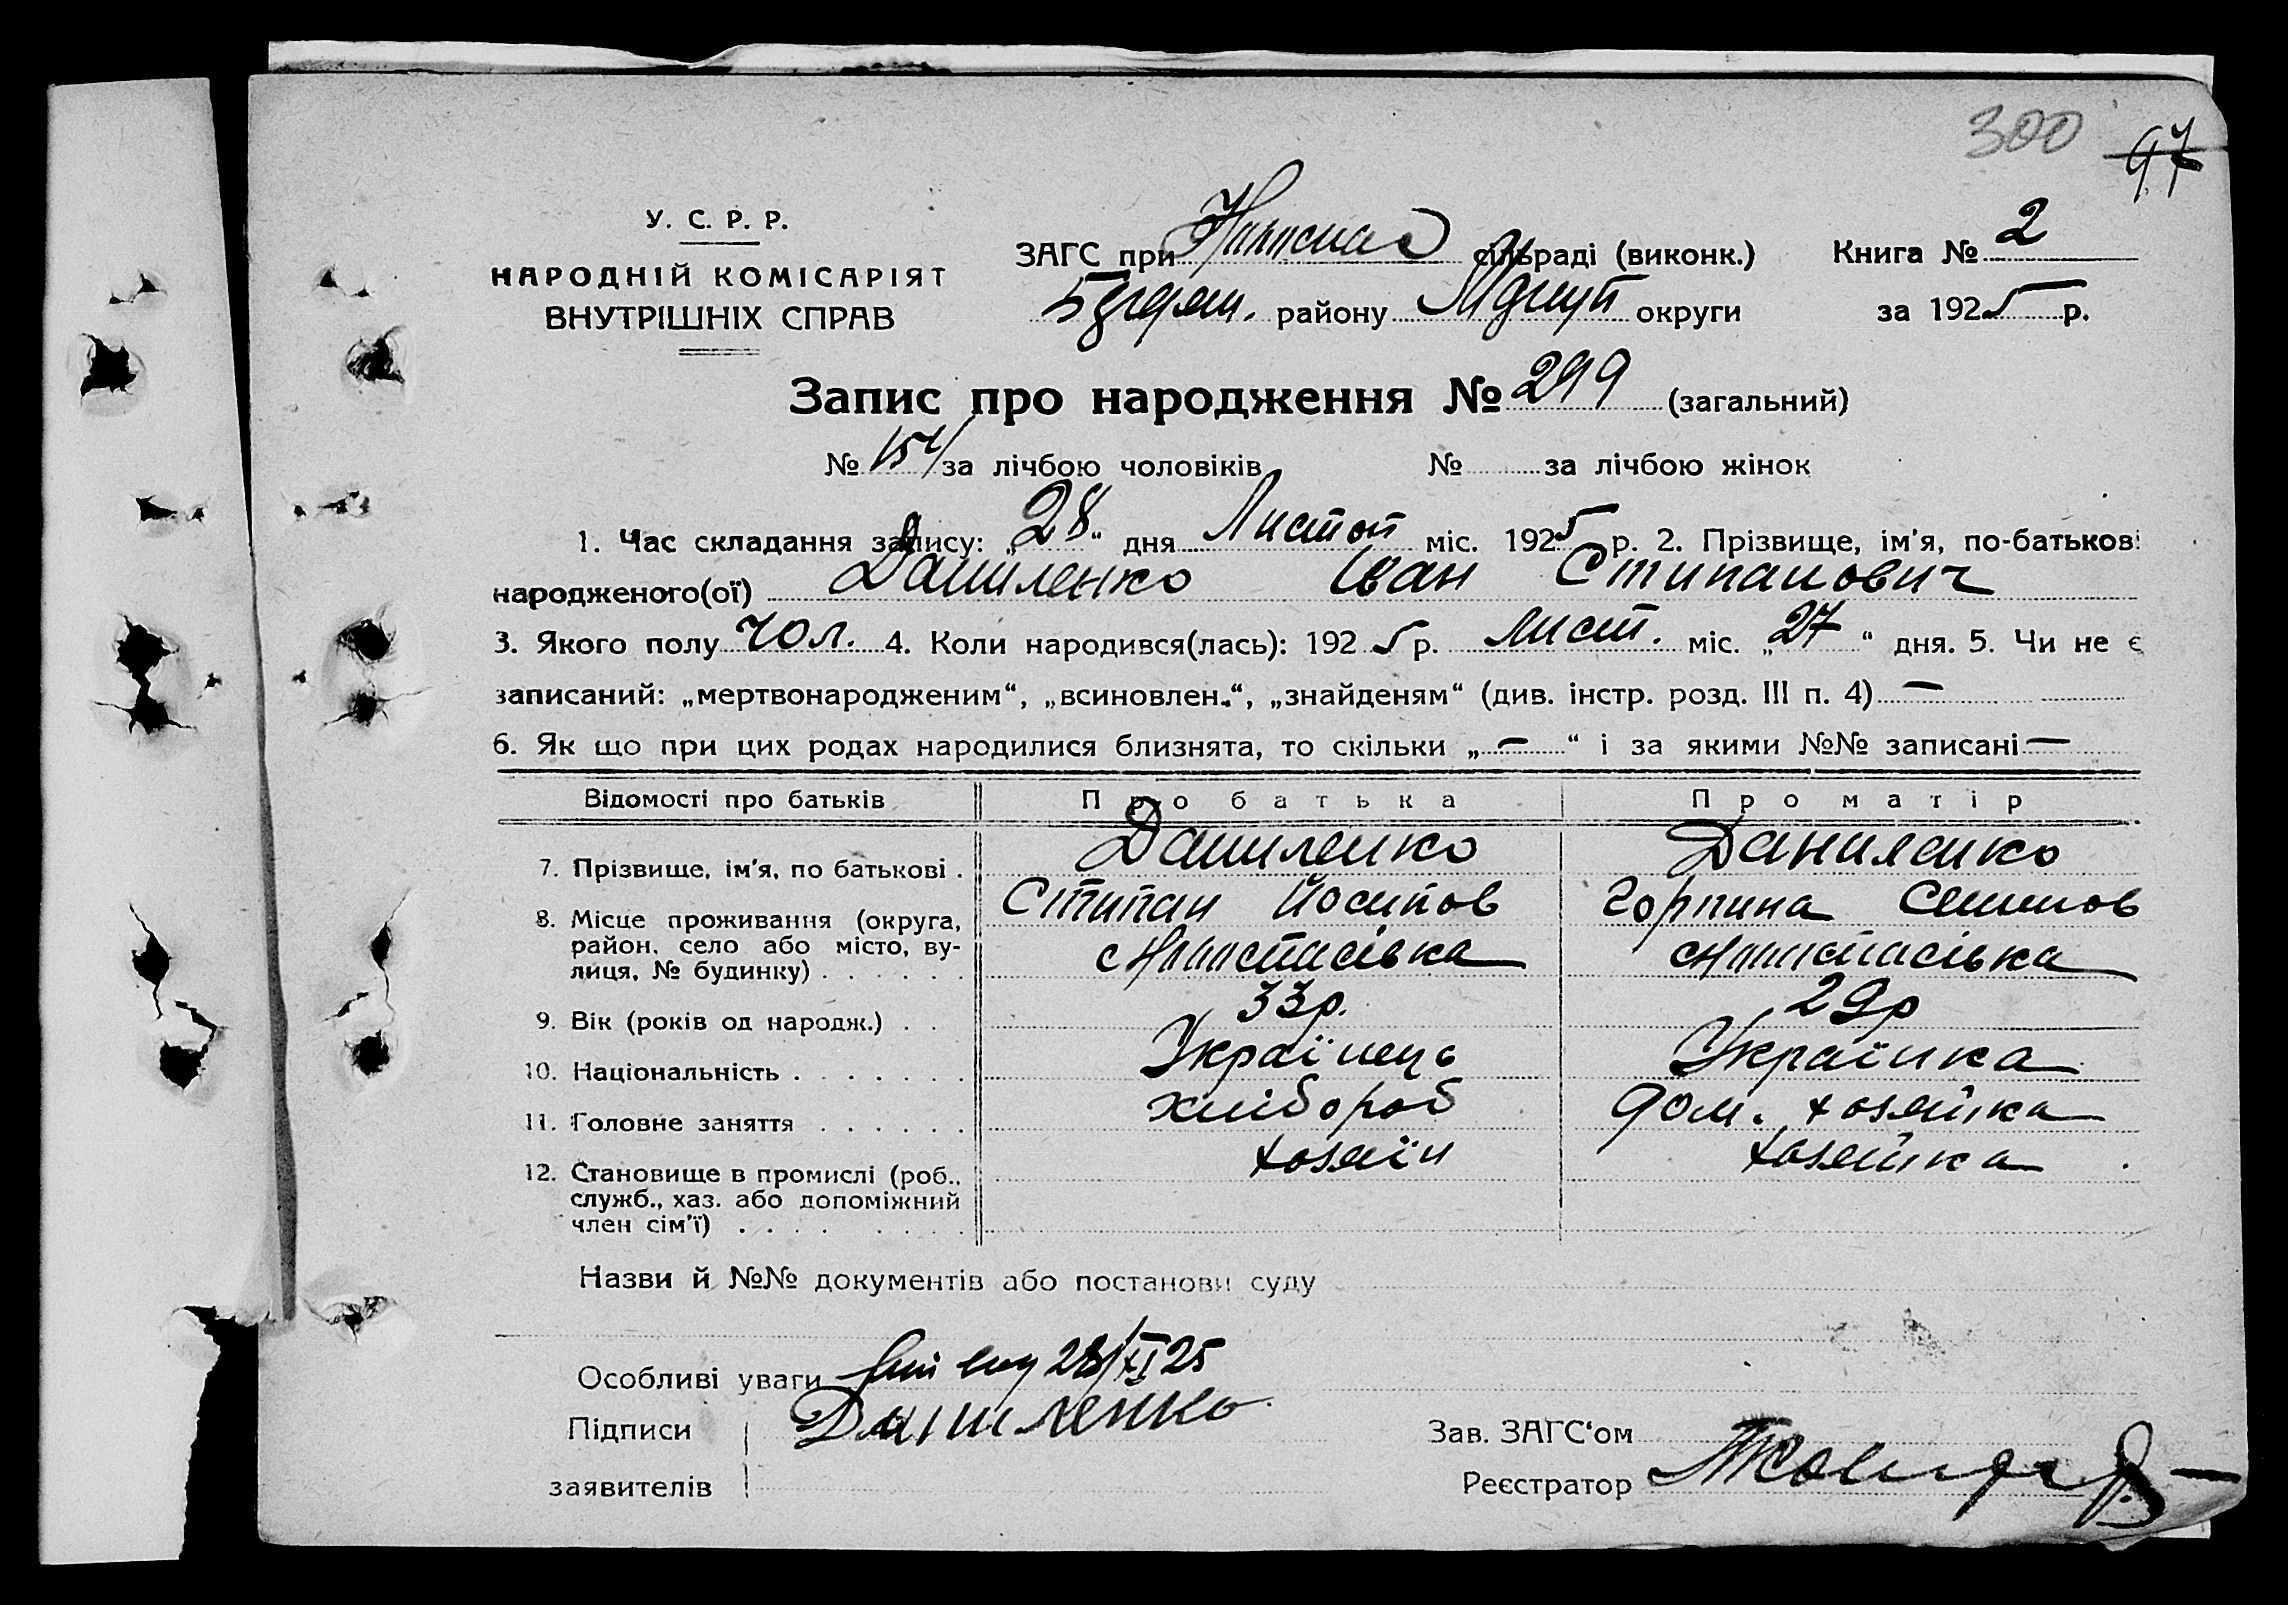 300 97
У. С. Р. Р.
НАРОДНІЙ КОМІСАРІЯТ
ВНУТРІШНІХ СПРАВ
ЗАГС при сільраді (виконк.) Книга № 2
району округи за 1925 р.
Запис про народження № 299 (загальний)
№ 154 за лічбою чоловіків № за лічбою жінок
1. Час складання запису: „28“ дня Листоп міс. 1925 р. 2. Прізвище, ім'я, по-батькові
народженого(ої) Даниленко Іван Стипанович
3. Якого полу чол. 4. Коли народився(лась): 1925 р. лист. міс. „27“ дня. 5. Чи не є
записаний: „мертвонародженим“, „всиновлен.“, „знайденям“ (див. інстр. розд. III п. 4) —
6. Як що при цих родах народилися близнята, то скільки „—“ і за якими №№ записані —
Відомості про батьків Про батька Про матір
7. Прізвище, ім'я, по батькові . Даниленко Даниленко
Стипан Йосипов Горпина Семенов
8. Місце проживання (округа,
район, село або місто, ву-
лиця, № будинку) . . . . . . с Анастасівка с Анастасівка
9. Вік (років од народж.) . . 33р. 29р
10. Національність . . . . . . . Українець Українка
11. Головне заняття . . . . . . хлібороб дом. хозяйка
12. Становище в промислі (роб.. хозяїн хозяйка
служб., хаз. або допоміжний
член сім'ї) . . . . . . . .
Назви й №№ документів або постанови суду
Особливі уваги 28/XI 25
Підписи Даниленко Зав. ЗАГС'ом
заявителів Реєстратор